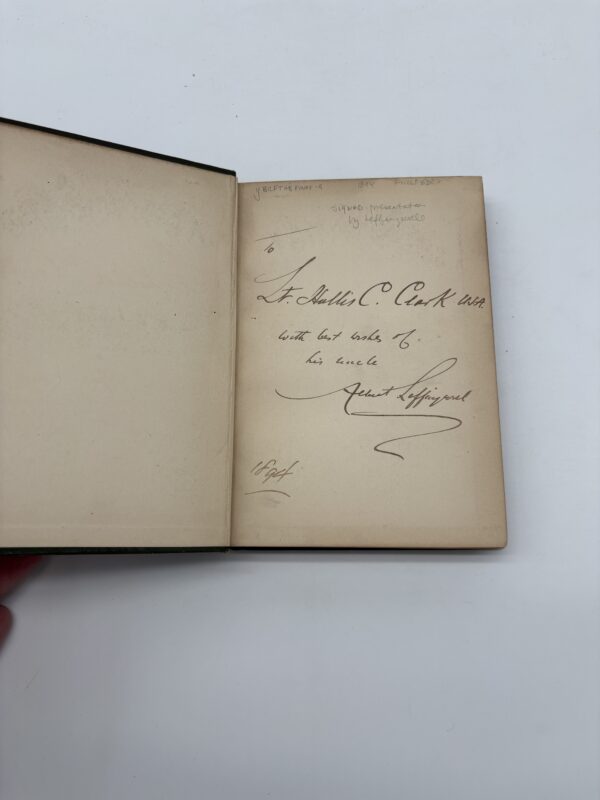 1894 FIRST ED.
SIGNED presentation
by Leffingwell
To
Lt. Hollis C. Clark USA.
with best wishes of
his uncle
Albert Leffingwell
1894